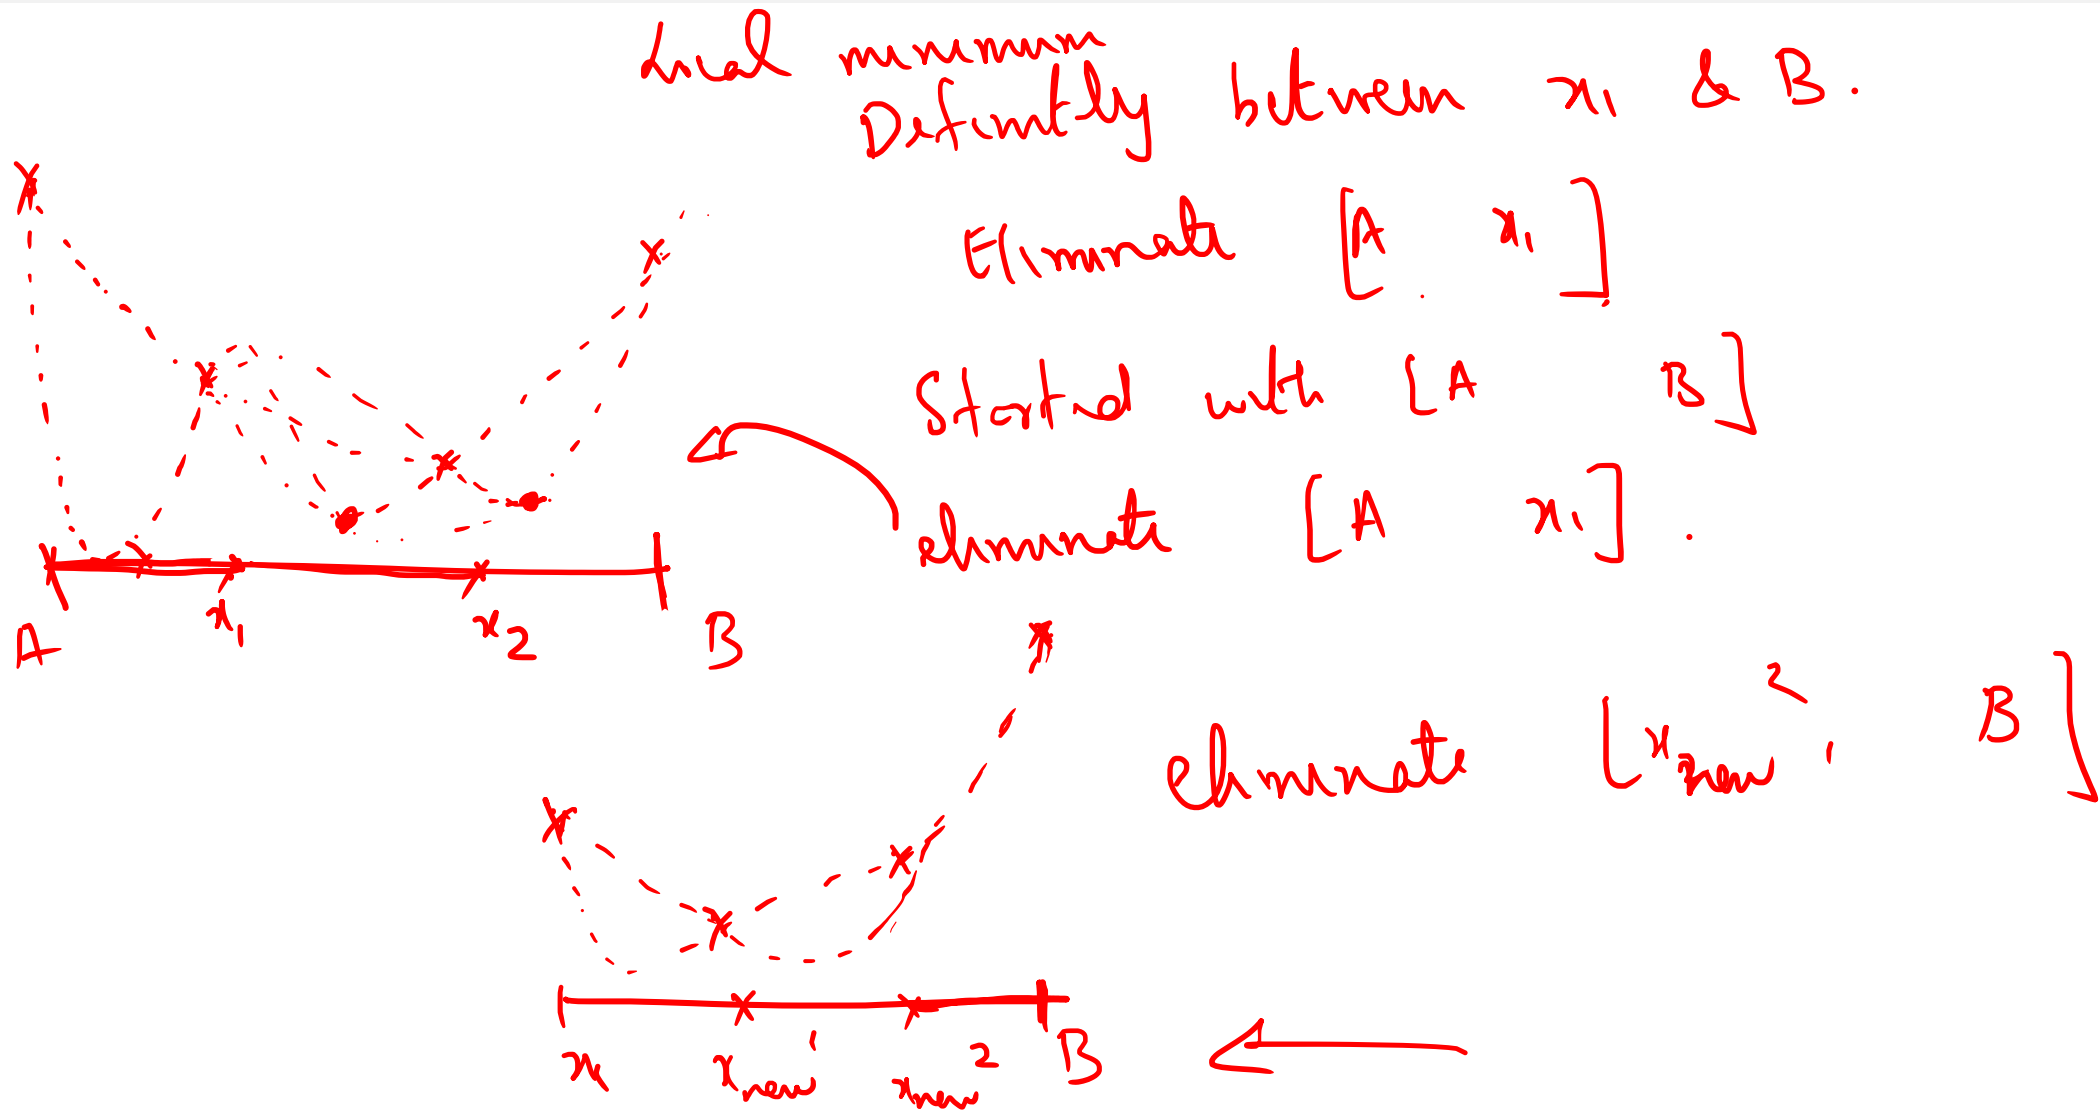 Local minimum
Definitly between x₁ & B.
Eliminate [A x₁]
Started with [A B]
eliminate [A x₁].
A x₁ x₂ B
eliminate [xnew² B]
x₁ xnew¹ xnew² B